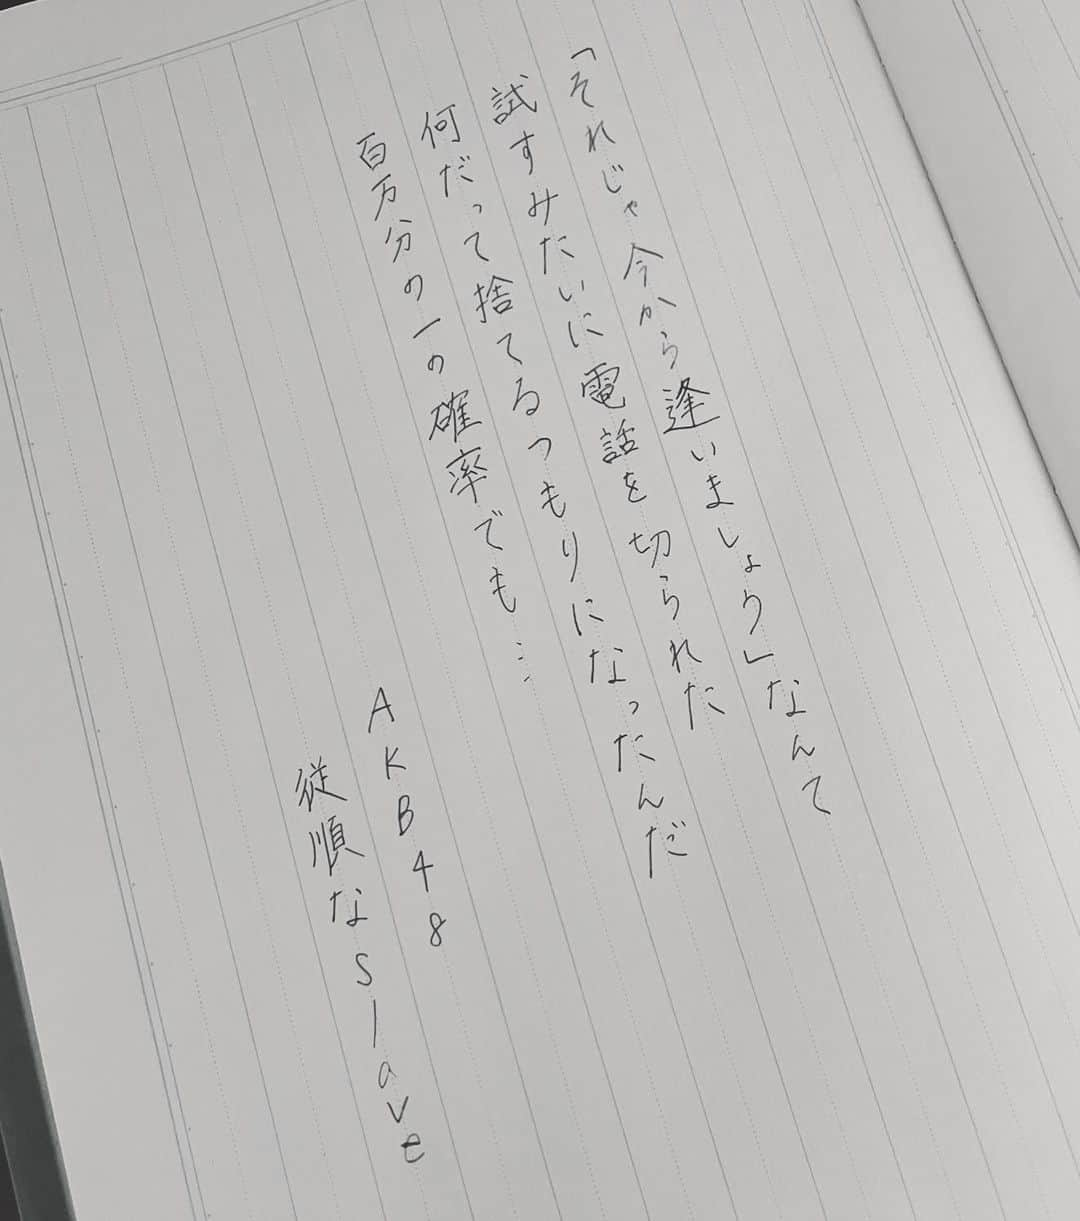 「それじゃ今から逢いましょう」なんて
試すみたいに電話を切られた
何だって捨てるつもりになったんだ
百万分の一の確率でも…
AKB48
従順なSlave